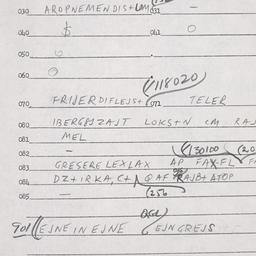 030 AROPNEMENDIS+UMI 031 -
040 $ 041 O
050
060 O
(118020)
070 FRIJERDIFLEJS+ 071 TELER
080 IBERGPIZAJT LOKS+N CM RAJ
081 MEL
082 - (130100 (20
083 GRESERE LEXLAX AP FAXFL F
084 DZ+IRKA, C+A GAF RAJB+ATOP
085 - (256
901 ((EJNE IN EJNE EJNGREJS